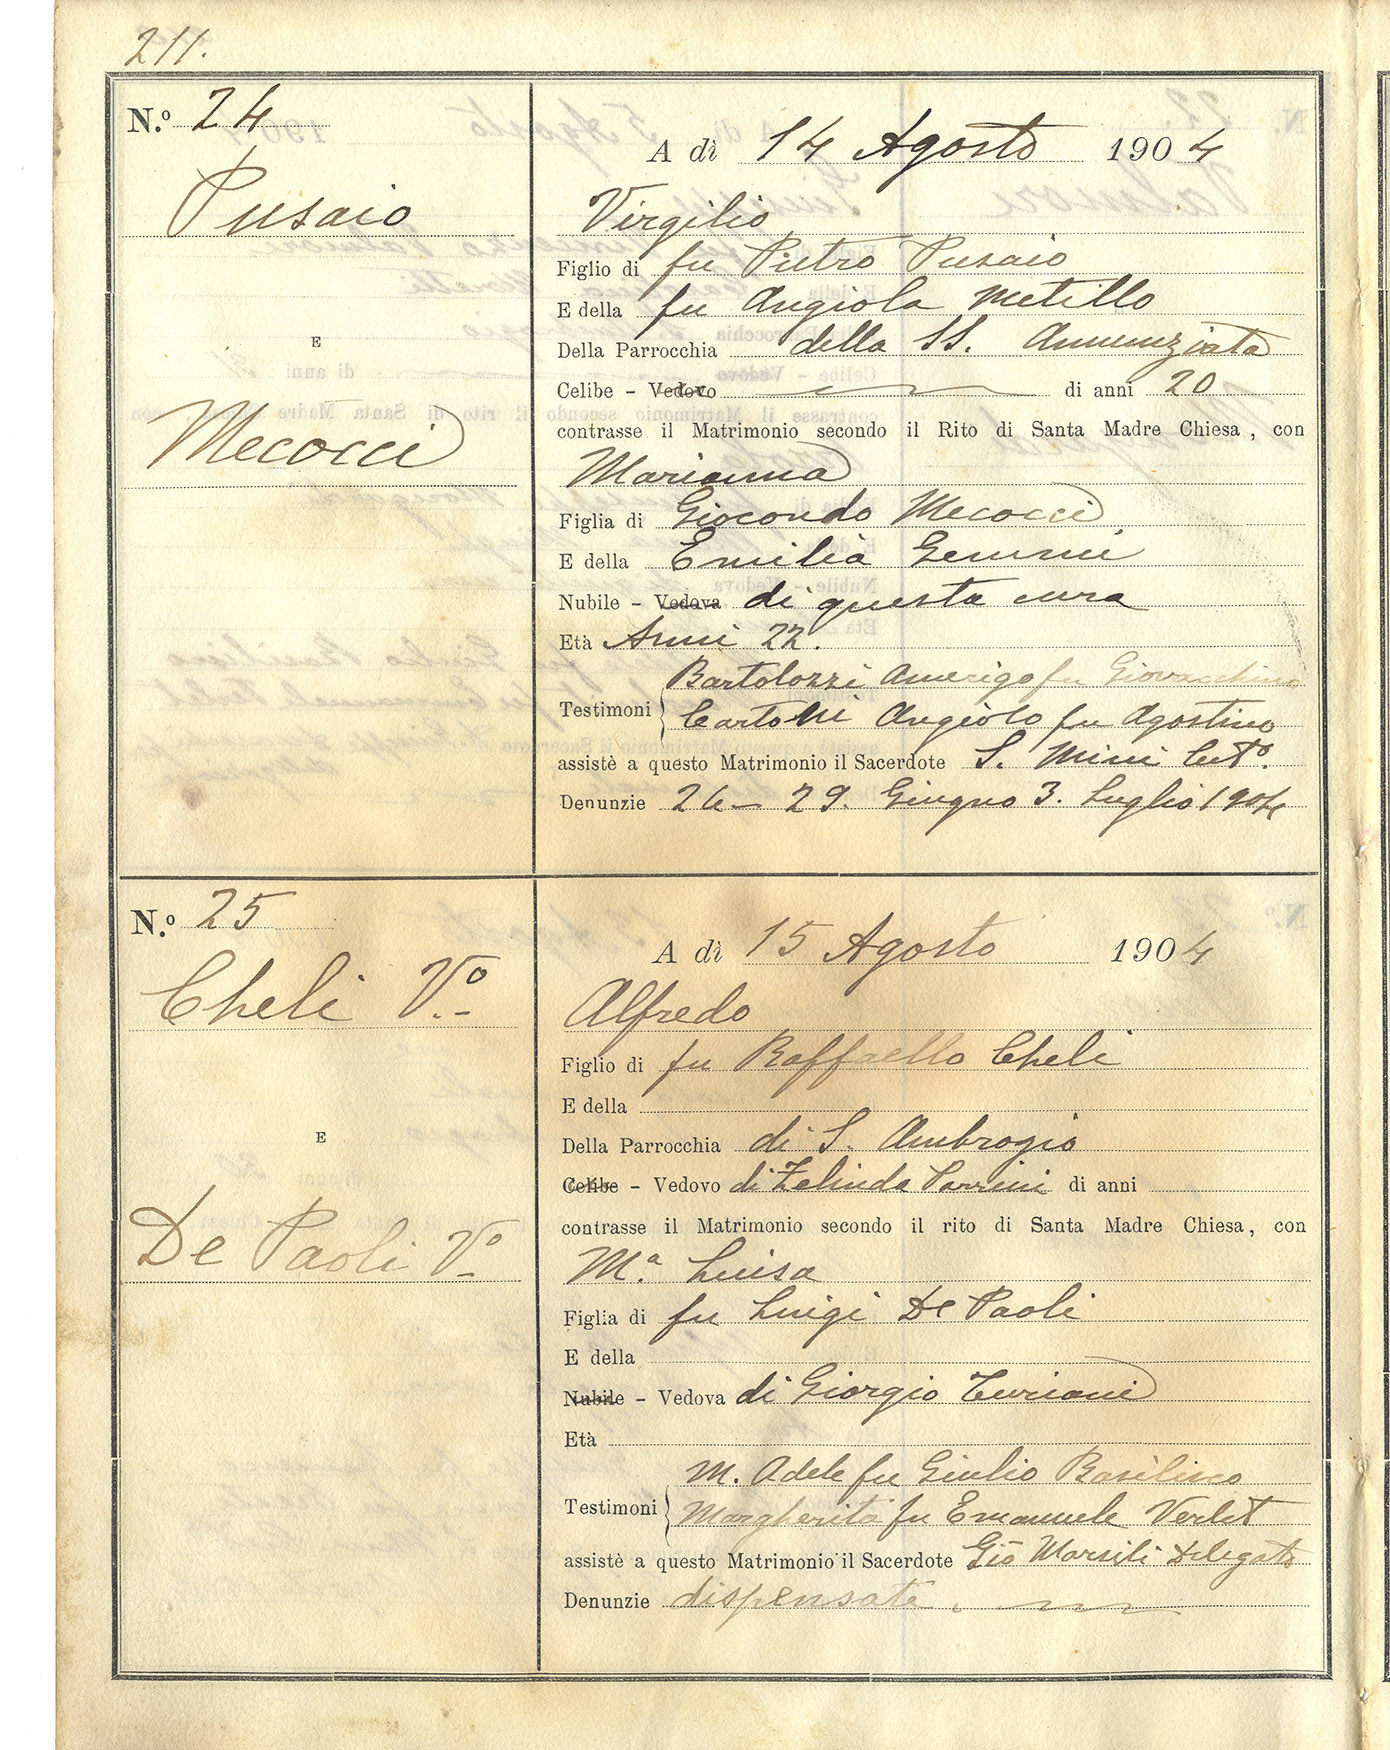 211.
N.º 24
Pusaio
E
Mecocci
A dì 14 Agosto 1904
Virgilio
Figlio di fu Pietro Pusaio
E della fu Angiola Metillo
Della Parrocchia della SS. Annunziata
Celibe - Vedovo di anni 20
contrasse il Matrimonio secondo il Rito di Santa Madre Chiesa, con
Marianna
Figlia di Giocondo Mecocci
E della Emilia Gemmi
Nubile - Vedova di questa cura
Età Anni 22.
Bartolozzi Amerigo fu Giovacchino
Testimoni Cartoni Angiolo fu Agostino
assistè a questo Matrimonio il Sacerdote S. Mini Cutº.
Denunzie 26 - 29. Giugno 3. Luglio 1904
N.º 25
Cheli Vº
E
De Paoli Vº
A dì 15 Agosto 1904
Alfredo
Figlio di fu Raffaello Cheli
E della
Della Parrocchia di S. Ambrogio
Celibe - Vedovo di Zelinda Parrini di anni
contrasse il Matrimonio secondo il rito di Santa Madre Chiesa, con
M.ª Luisa
Figlia di fu Luigi De Paoli
E della
Nubile - Vedova di Giorgio Turiani
Età
M. Adele fu Giulio Basilisco
Testimoni Margherita fu Emanuele Verlet
assistè a questo Matrimonio il Sacerdote Gio Marsili Delegato
Denunzie dispensate.